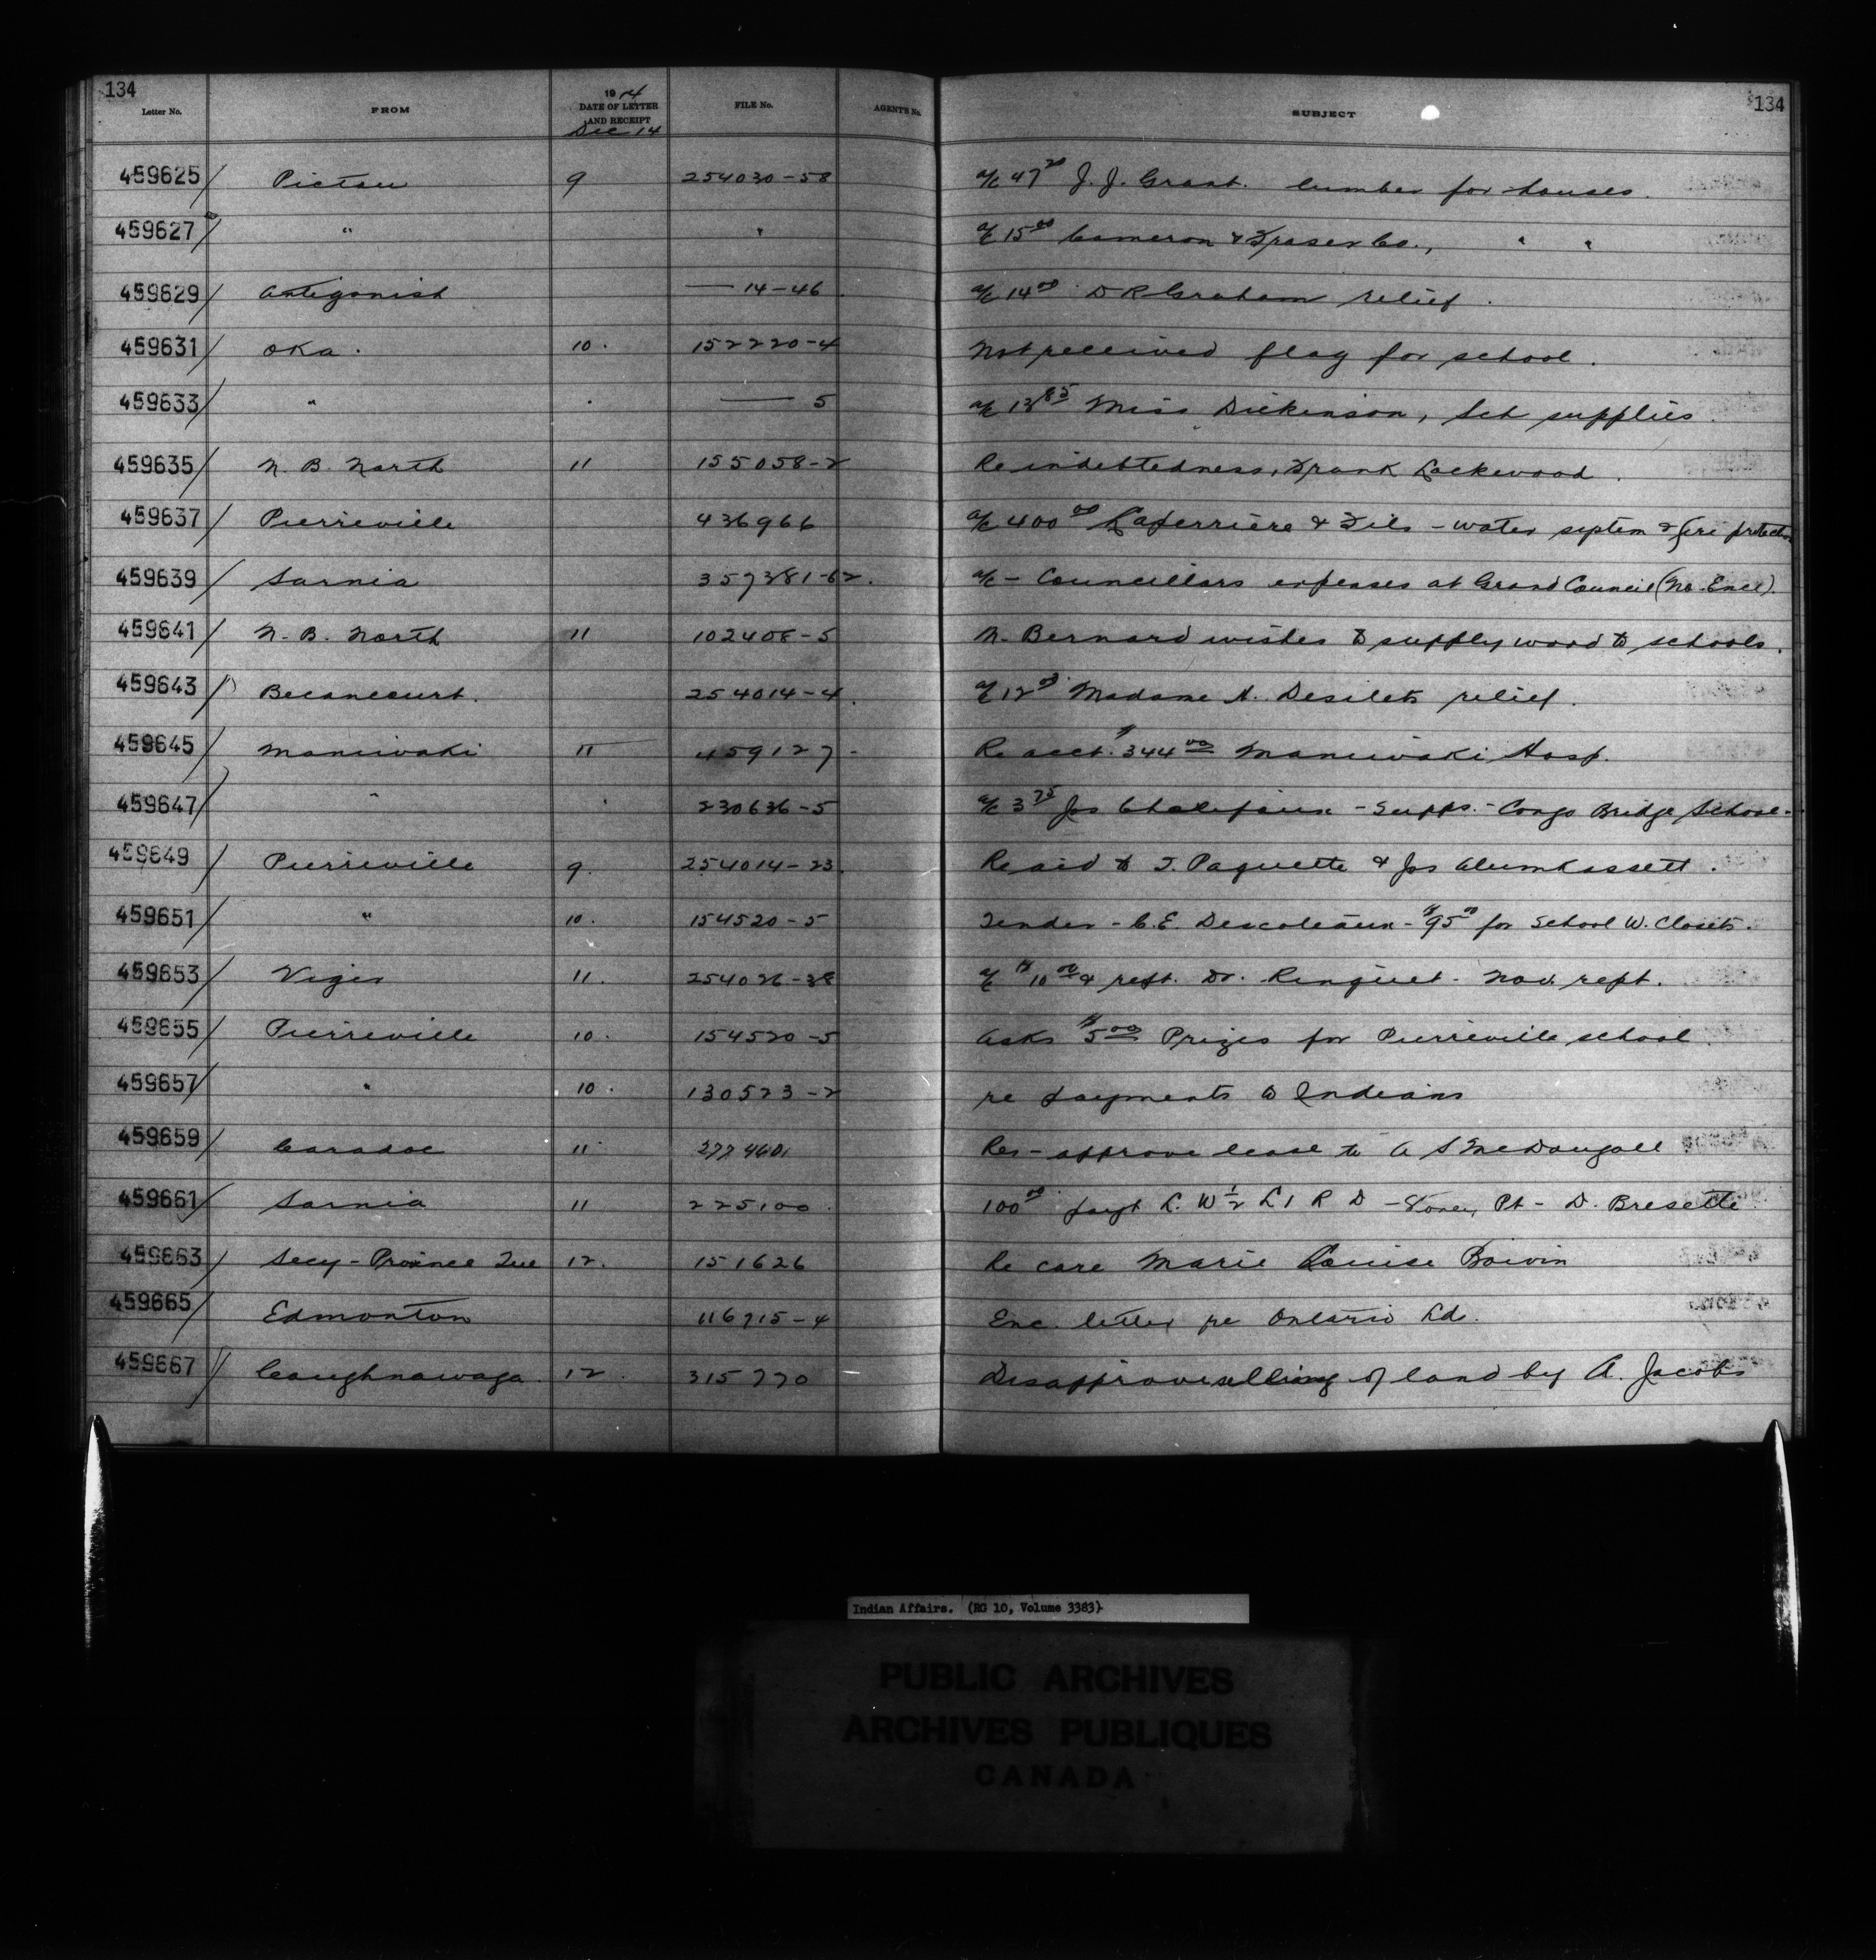 134 134
Letter No. FROM 1914 DATE OF LETTER AND RECEIPT FILE No. AGENT'S No. SUBJECT
Dec 14
459625 Pictou 9 254030-58 a/c 47 20 J. J. Grant. lumber for houses.
459627 " " a/c 15 00 Cameron & Fraser Co., " "
459629 Antigonish — 14-46 a/c 14 00 D R Graham relief.
459631 Oka. 10. 152220-4 Not received flag for school.
459633 " " — 5 a/c 13 85 Miss Dickinson, Sch supplies.
459635 N. B. North 11 155058-2 Re indebtedness, Frank Lockewood.
459637 Pierreville 436966 a/c 400 00 Laferriere & Fils - water septem & fire protection
459639 Sarnia 357381-62. a/c - Councillors expenses at Grand Council (No Encl).
459641 N. B. North 11 102408-5 N. Bernard wishes to supply wood to schools.
459643 Becancourt. 254014-4. a/c 12 00 Madame A. Desilets relief.
459645 Maniwaki 11 459127- Re acct. $344 00 Maniwaki Hosp.
459647 " " 230636-5 a/c 3 75 Jos Chalifoux - Supps. - Congo Bridge School-
459649 Pierreville 9. 254014-23. Re aid to T. Paquette & Jos
459651 " 10. 154520-5 Tender - C.E. Descoteaux - $95 00 for School W. Closets.
459653 Viger 11. 254026-38 a/c $10 00 & rept. Dr. Ringuet - Nov. rept.
459655 Pierreville 10. 154520-5 Asks $5 00 Prizes for Pierreville school.
459657 " 10. 130523-2 re payments to Indians
459659 Caradoc 11 277460 Res - approve lease to A S McDougall
459661 Sarnia 11 225100. 100 00 payt L. W 1/2 L 1 R D - Stoney Pt - D. Bresette
459663 Secy - Province Que 12. 151626 Re care Marie Louise Boivin
459665 Edmonton 116715-4 Enc. letter re Ontario Ld.
459667 Caughnawaga. 12. 315770 Disapprove selling of land by A. Jacobs
Indian Affairs. (RG 10, Volume 3383)
PUBLIC ARCHIVES
ARCHIVES PUBLIQUES
CANADA